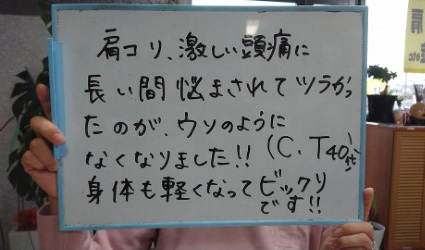 肩コリ、激しい頭痛に
長い間悩まされてツラかっ
たのが、ウソのように
なくなりました!! (C.T40才)
身体も軽くなってビックリ
です!!
肩
etc